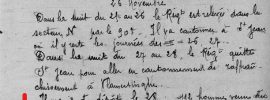 26 Novembre
Dans la nuit du 25 au 26 le Régt est relevé dans le
secteur N par le 90e. Il va cantonner à St Jean
où il y reste les journées des 26 - 27.
Dans la nuit du 27 au 28, le Régt quitte
St Jean pour aller en cantonnement de rafraî-
chissement à Vlamertinghe.
le 28 homme venu du